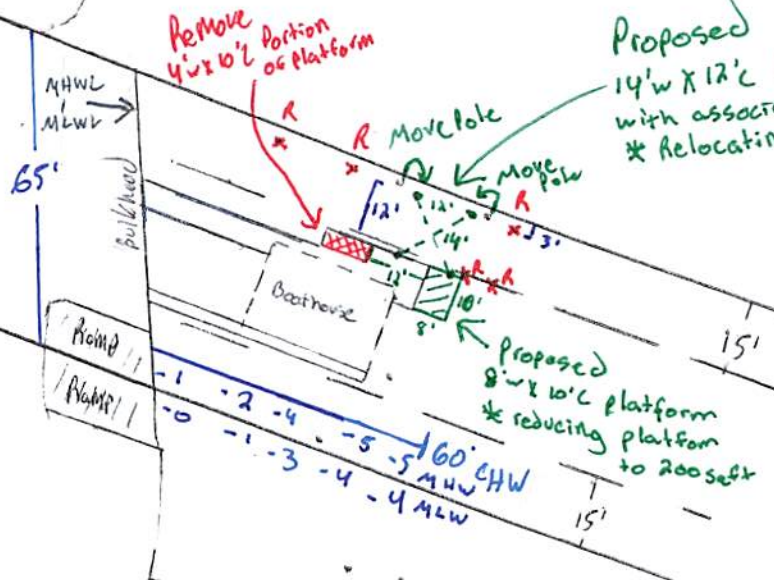 Remove
4'w x 10'l Portion
of platform
Proposed
14'w x 12'l
with associ
* Relocatin
MHWL
MLWL
65'
Bulkhead
R
R
Move Pole
Move
Pole
R
3'
12'
12'
14'
12'
R
R
10'
8'
Boathouse
Ramp
Ramp
Proposed
8'w x 10'l platform
* reducing platfom
to 200 sqft
15'
15'
-1 -2 -4 -5 -5 MHW
-0 -1 -3 -4 -4 MLW
60' CHW